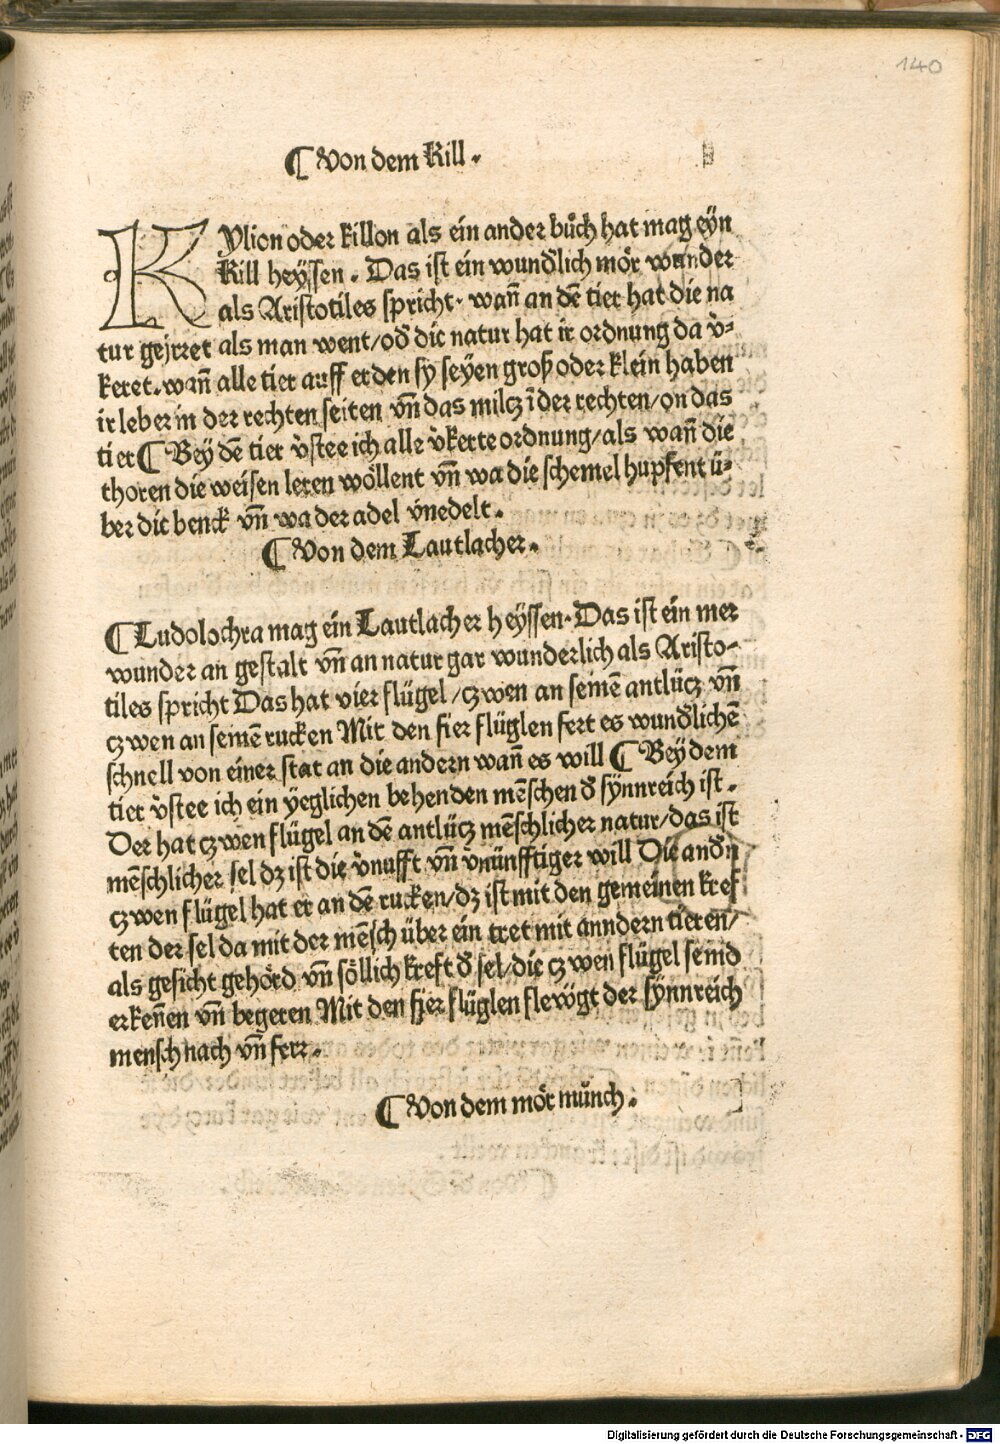 140
¶ Von dem Kill.
KYlion oder killon als ein ander bůch hat mag eyn
Kill heyssen. Das ist ein wundďlich mör wunder
als Aristotiles spricht. wañ an dē tier hat die na
tur gejrret als man went/oď die natur hat ir ordnung da v̓-
keret. wañ alle tier auff erden sy seyen groß oder klein haben
ir leber in der rechten seiten vñ das milcz ī der rechten/on das
tier ¶ Bey dē tier v̓stee ich alle v̓kerte ordnung/als wañ die
thoren die weisen leren wöllent vñ wa die schemel hupfent ü-
ber die benck vñ wa der adel v̓nedelt.
¶ Von dem Lautlacher.
¶ Ludolochra mag ein Lautlacher heyssen. Das ist ein mer
wunder an gestalt vñ an natur gar wunderlich als Aristo-
tiles spricht Das hat vier flügel/czwen an seinē antlücz vñ
czwen an seinē rucken Mit den fier flüglen fert es wundďlichē
schnell von einer stat an die andern wañ es will ¶ Bey dem
tier v̓stee ich ein yeglichen behenden mēschen ď synnreich ist.
Der hat czwen flügel an dē antlücz mēschlicher natur/das ist
mēschlicher sel dz ist die v̓nufft vñ v̓nünfftiger will Die andďn
czwen flügel hat er an dē rucken/dz ist mit den gemeinen kref
ten der sel da mit der mēsch über ein tret mit anndern tieren/
als gesicht gehörd vñ söllich kreft ď sel/die czwen flügel seind
erkeñen vñ begeren Mit den fier flüglen flewgt der synnreich
mensch nach vñ ferr.
¶ Von dem mör münch.
Digitalisierung gefördert durch die Deutsche Forschungsgemeinschaft - DFG